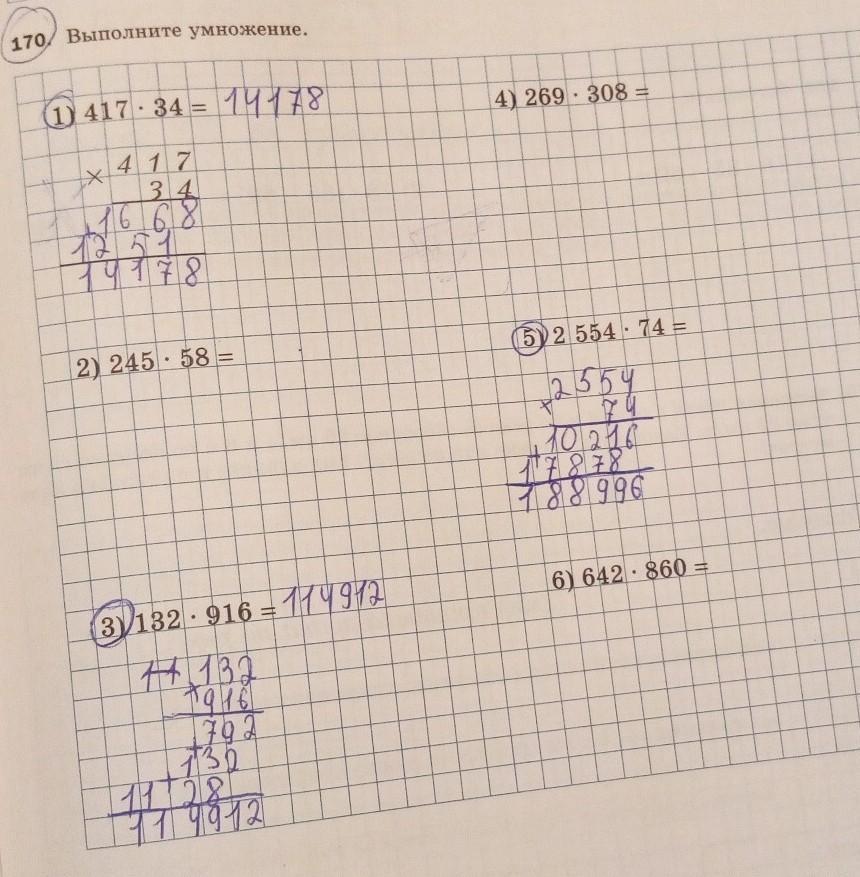 170. Выполните умножение.
1) 417 · 34 = 14178
× 417
34
+1668
1251
14178
2) 245 · 58 =
3) 132 · 916 = 114912
11 132
×916
+792
+132
1128
114912
4) 269 · 308 =
5) 2 554 · 74 =
2554
× 74
+10216
17878
188996
6) 642 · 860 =